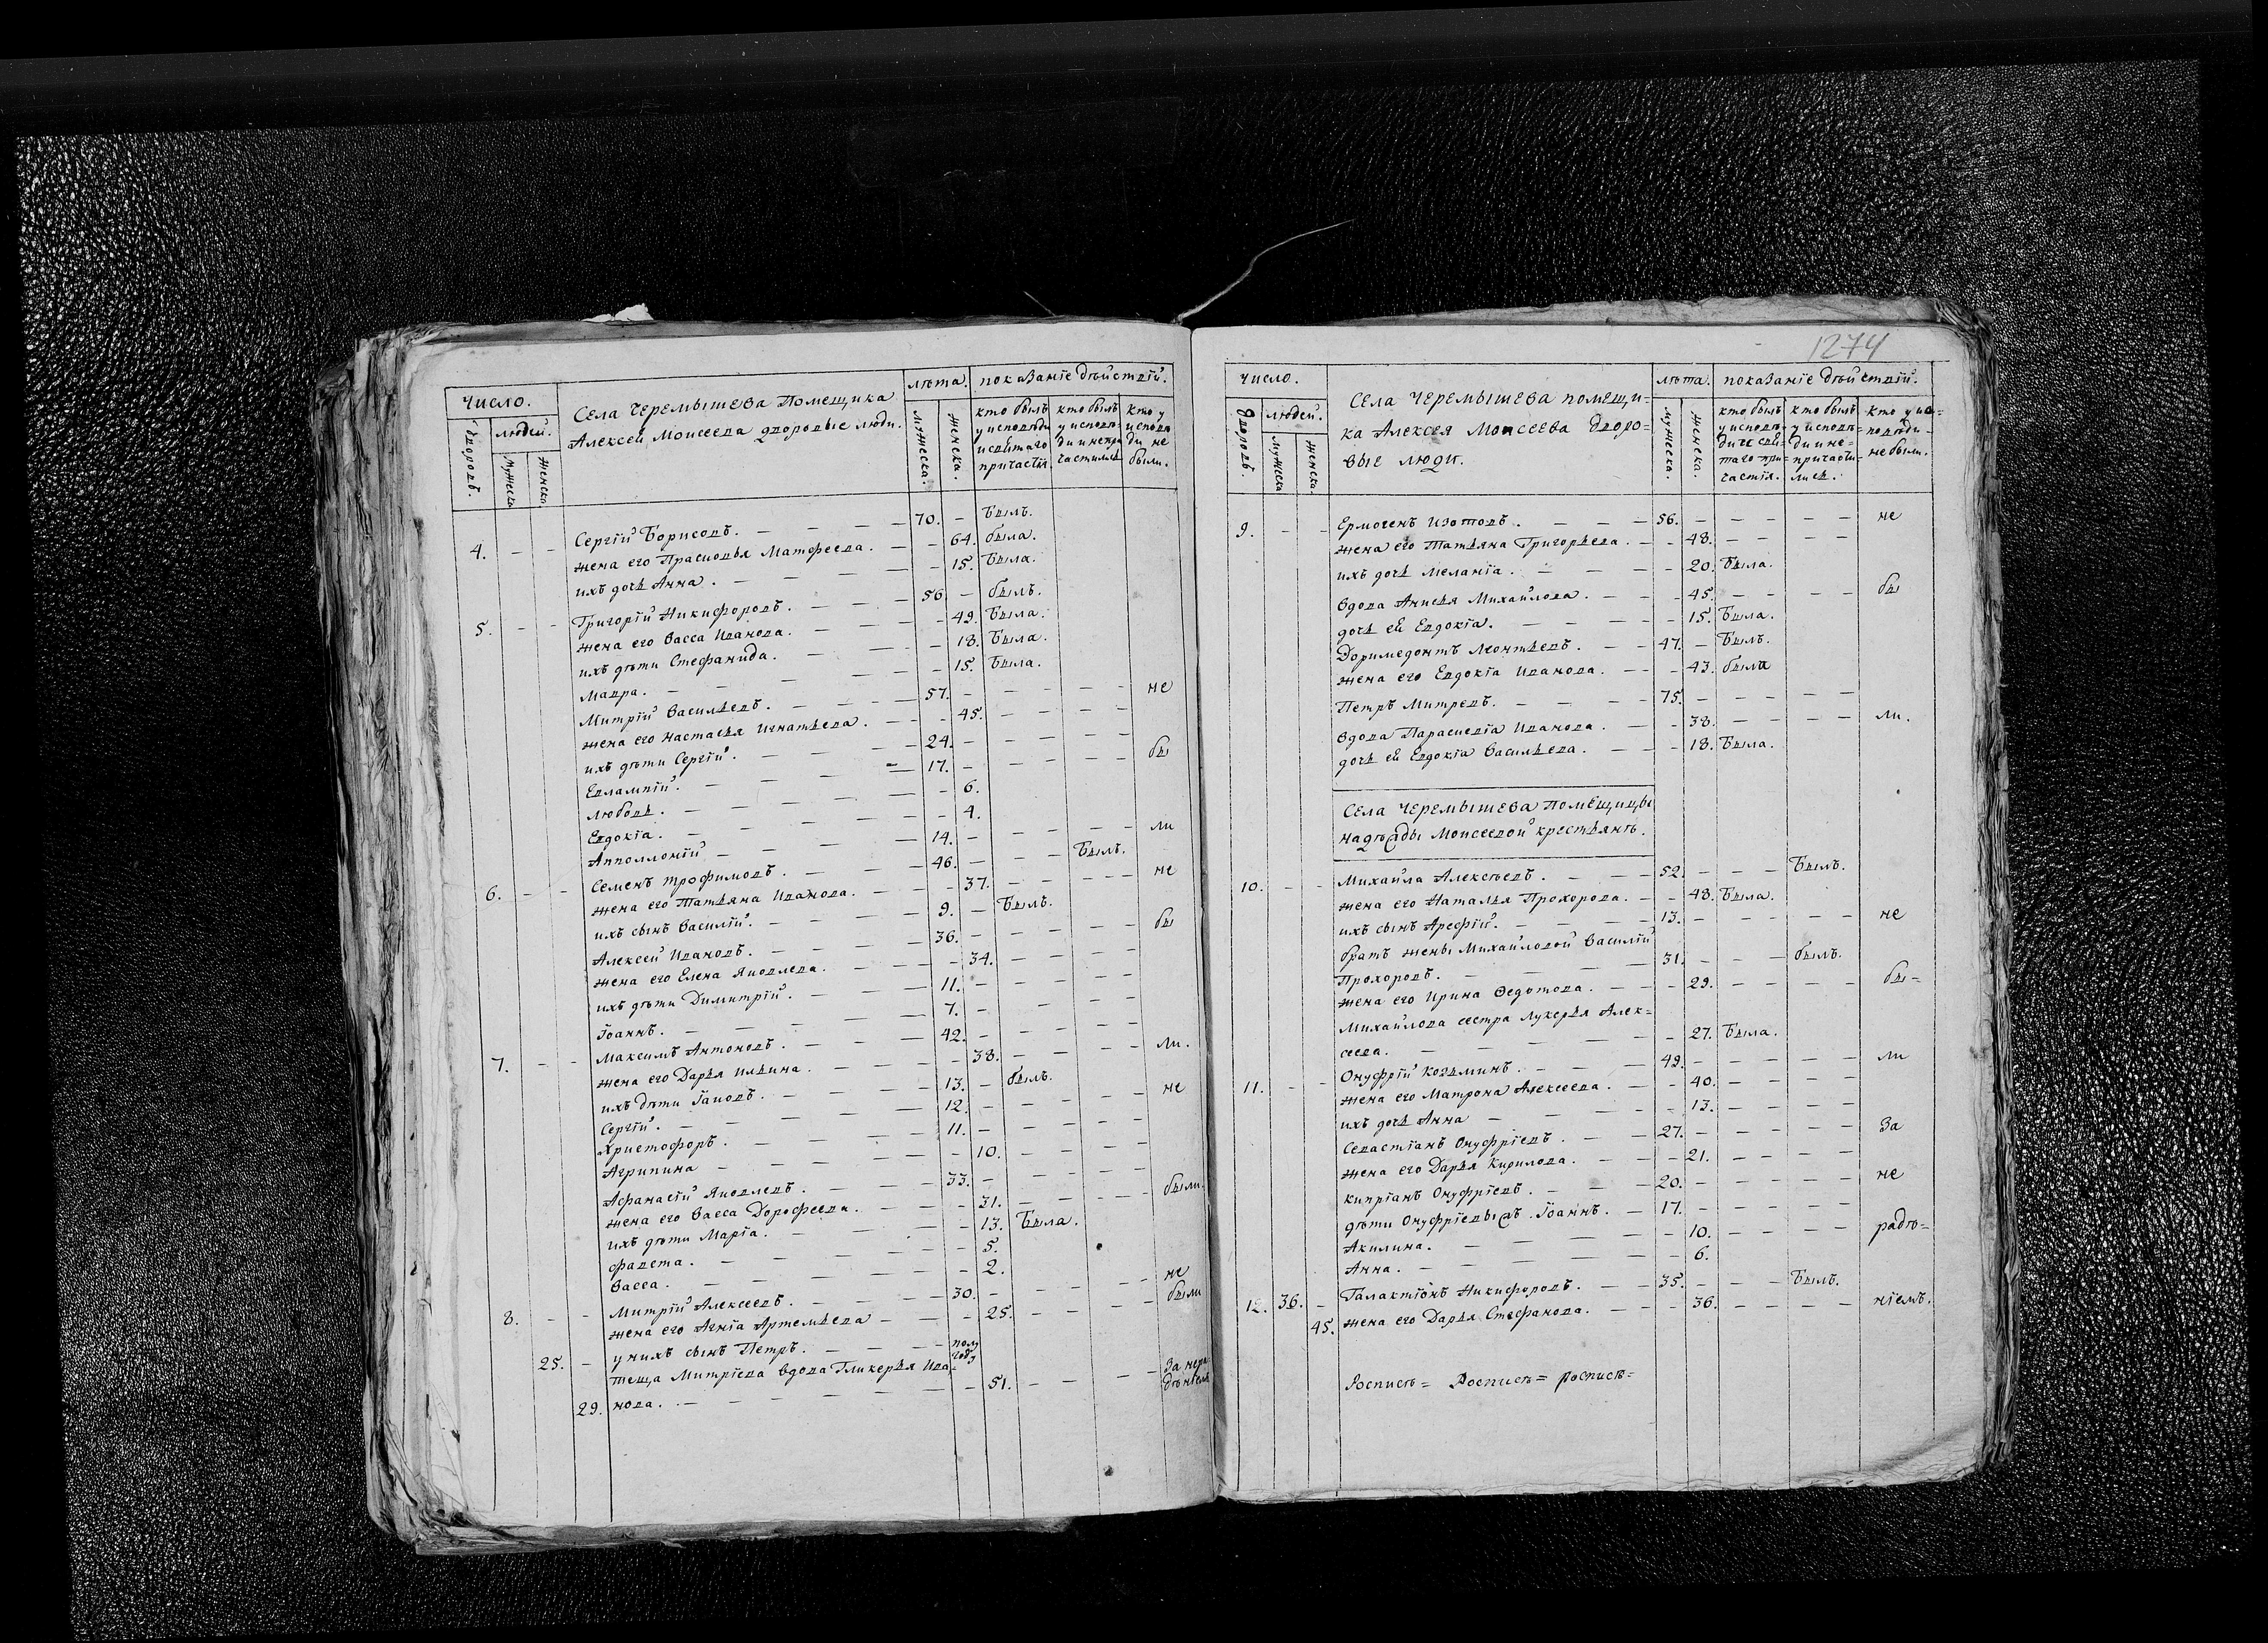 число.
дворовъ.
людей.
мужеска
женска
Села Черемышева Помещика
Алексей Моисеева дворовые люди.
лѣта.
мужеска.
женска.
показанїе дѣйствїй.
кто былъ у исповѣди и святаго причастія
кто былъ у исповѣди и непричастился
кто у исповѣди не были.
4. Сергїй Борисовъ. 70. — Былъ.
жена его Прасковья Матфеева. — 64. была.
ихъ дочь Анна. — 15. Была.
5. Григорїй Никифоровъ. 56 — былъ.
жена его Васса Иванова. — 49. Была.
ихъ дѣти Стефанида. — 18. Была.
Мавра. — 15. Была.
Митрїй Васильевъ. 57. — не
жена его Настасья Игнатьева. — 45.
ихъ дѣти Сергїй. 24.
Евлампїй. 17. — бы
любовь. — 6.
Евдокїа. — 4.
Апполлонїй 14. — ли
6. Семенъ Трофимовъ. 46. — Былъ.
жена его Татьяна Иванова. — 37. — не
ихъ сынъ Василїй. 9. — Былъ.
Алексей Ивановъ. 36. — бы
жена его Елена Яковлева. — 34.
ихъ дѣти Димитрїй. 11.
Їоаннъ. 7.
7. Максимъ Антоновъ. 42.
жена его Дарья Ильина. — 38. — ли.
ихъ дѣти Їаковъ. 13. — былъ.
Сергїй. 12. — не
Христофоръ. 11.
Агрипина — 10.
Афанасїй Яковлевъ. 33.
жена его Васса Дорофеева. — 31. — были.
ихъ дѣти Марїа. — 13. Была.
фавста. — 5.
Васса. — 2.
8. Митрїй Алексеевъ. 30. — не
жена его Агнїа Артемьева — 25. — были
25. у нихъ сынъ Петръ. полугоду
теща Митрїева вдова Гликерья Ива-
29. нова. — 51. — За нерадѣнїем
1274
число.
дворовъ.
людей.
мужеска
женска.
Села Черемышева помещи=
ка Алексея Моисеева дворо=
вые люди.
лѣта.
мужеска.
женска.
показанїе дѣйствїй.
кто былъ у исповѣди и святаго при=частїя.
кто былъ у исповѣди и не=причасти=лись.
кто у ис=повѣди не были.
9. Ермогенъ Изотовъ. 56. — не
жена его Татьяна Григорьева. — 48.
ихъ дочь Меланїа. — 20. Была.
вдова Анисья Михайлова. — 45. — бы
дочь ей Евдокїа. — 15. Была.
Доримедонтъ Леонтьевъ. 47. — Былъ.
жена его Евдокїа Иванова. — 43. была
Петръ Митревъ. 75.
вдова Парасшевїа Иванова. — 38. — ли.
дочь ей Евдокїа Васильева. — 18. Была.
Села Черемышева Помещицы
надѣжды Моисеевой крестьянъ.
10. Михайла Алексѣевъ. 52. — Былъ.
жена его Наталья Прохорова. — 48. Была.
ихъ сынъ Арефїй. 13. — не
братъ жены Михайловой Василїй
Прохоровъ. 31. — былъ.
жена его Ирина Ѳедотова. — 29. — бы=
Михайлова сестра Лукерья Алек=
сеева. — 27. Была.
11. Онуфрїй Козьминъ. 49. — ли
жена его Матрона Алексеева. — 40.
ихъ дочь Анна — 13.
Севастїанъ Онуфрїевъ. 27. — За
жена его Дарья Кирилова. — 21.
Кипрїанъ Онуфрїевъ. 20. — не
дѣти Онуфрїевы хъ Їоаннъ. 17.
Акилина. — 10. — радѣ=
Анна. — 6.
12. 36. Галактїонъ Никифоровъ. 35. — Былъ.
45. жена его Дарья Стефанова. — 36. — нїемъ.
Роспись= Роспись= Роспись=